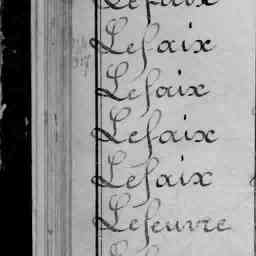 Lefaix
Lefaix
Lefaix
Lefaix
Lefaix
Lefeuvre